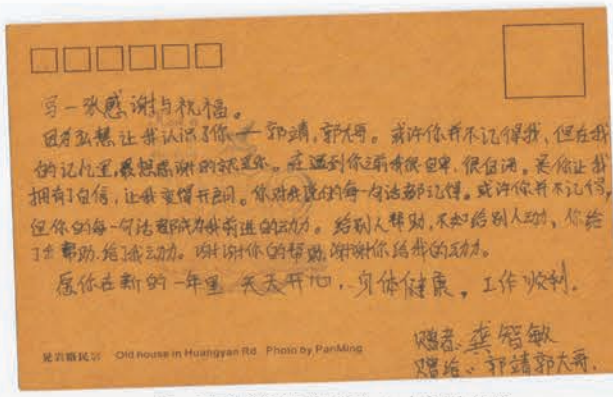 写一张感谢与祝福。
因为弘慧让我认识了你——郭靖,郭大哥。或许你并不记得我,但在我
的记忆里,最想感谢的就是你。在遇到你之前我很自卑,很自闭。是你让我
拥有了自信,让我变得开朗。你对我说的每一句话都记得。或许你并不记得
但你的每一句话都成为我前进的动力。给别人帮助,不如给别人动力,你给
了我帮助,给了我动力。谢谢你的帮助,谢谢你给我的动力。
愿你在新的一年里 天天开心,身体健康,工作顺利。
赠者:龚智敏
赠给:郭靖郭大哥.
晃岩路民宅 Old house in Huangyan Rd Photo by PanMing